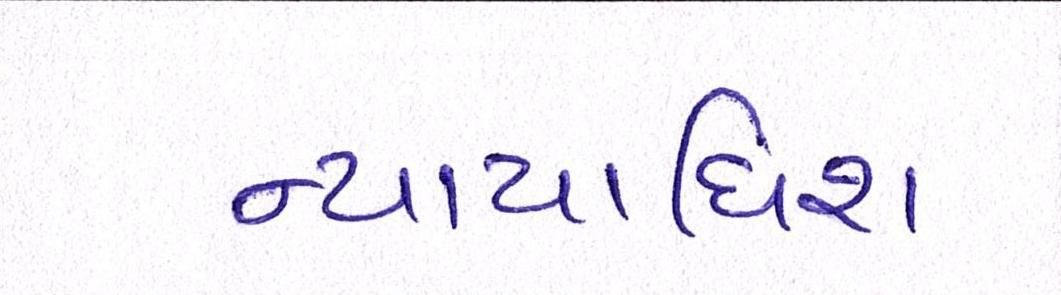 ન્યાયાધિશ